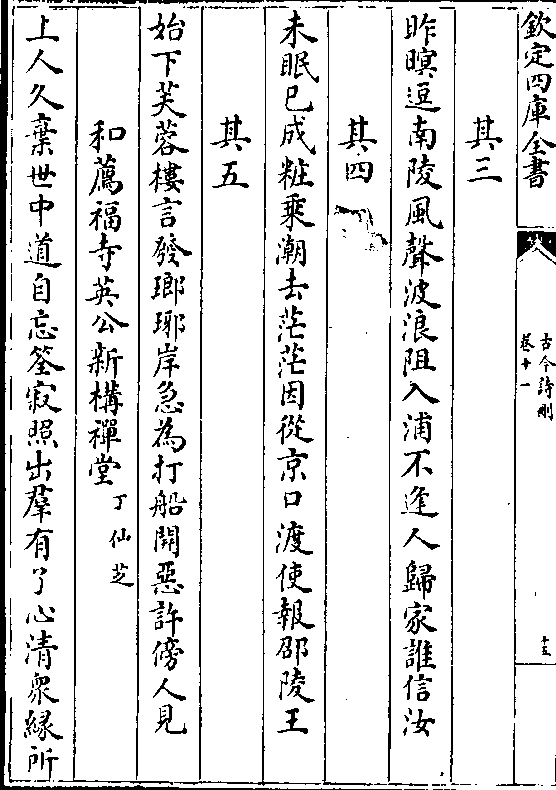 欽定四庫全書
古今詩刪
卷十一
十五
其三
昨暝逗南陵風聲波浪阻入浦不逢人歸家誰信汝
其四
未眠已成粧乘潮去茫茫因從京口渡使報邵陵王
其五
始下芙蓉樓言發瑯琊岸急為打船開惡許傍人見
和薦福寺英公新構禪堂
丁仙芝
上人久棄世中道自忘筌寂照出羣有了心清衆緣所